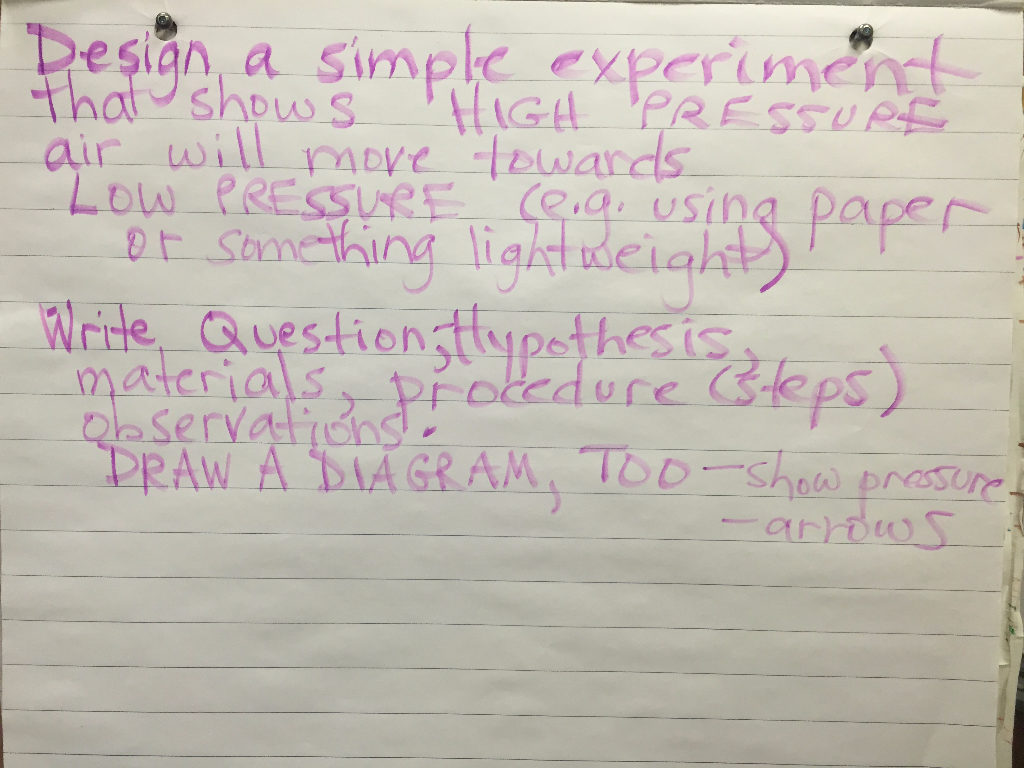 Design a simple experiment
that shows HIGH PRESSURE
air will move towards
LOW PRESSURE (e.g. using paper
or something lightweight)
Write Question, Hypothesis,
materials, procedure (steps)
observations.
DRAW A DIAGRAM, TOO - show pressure
- arrows